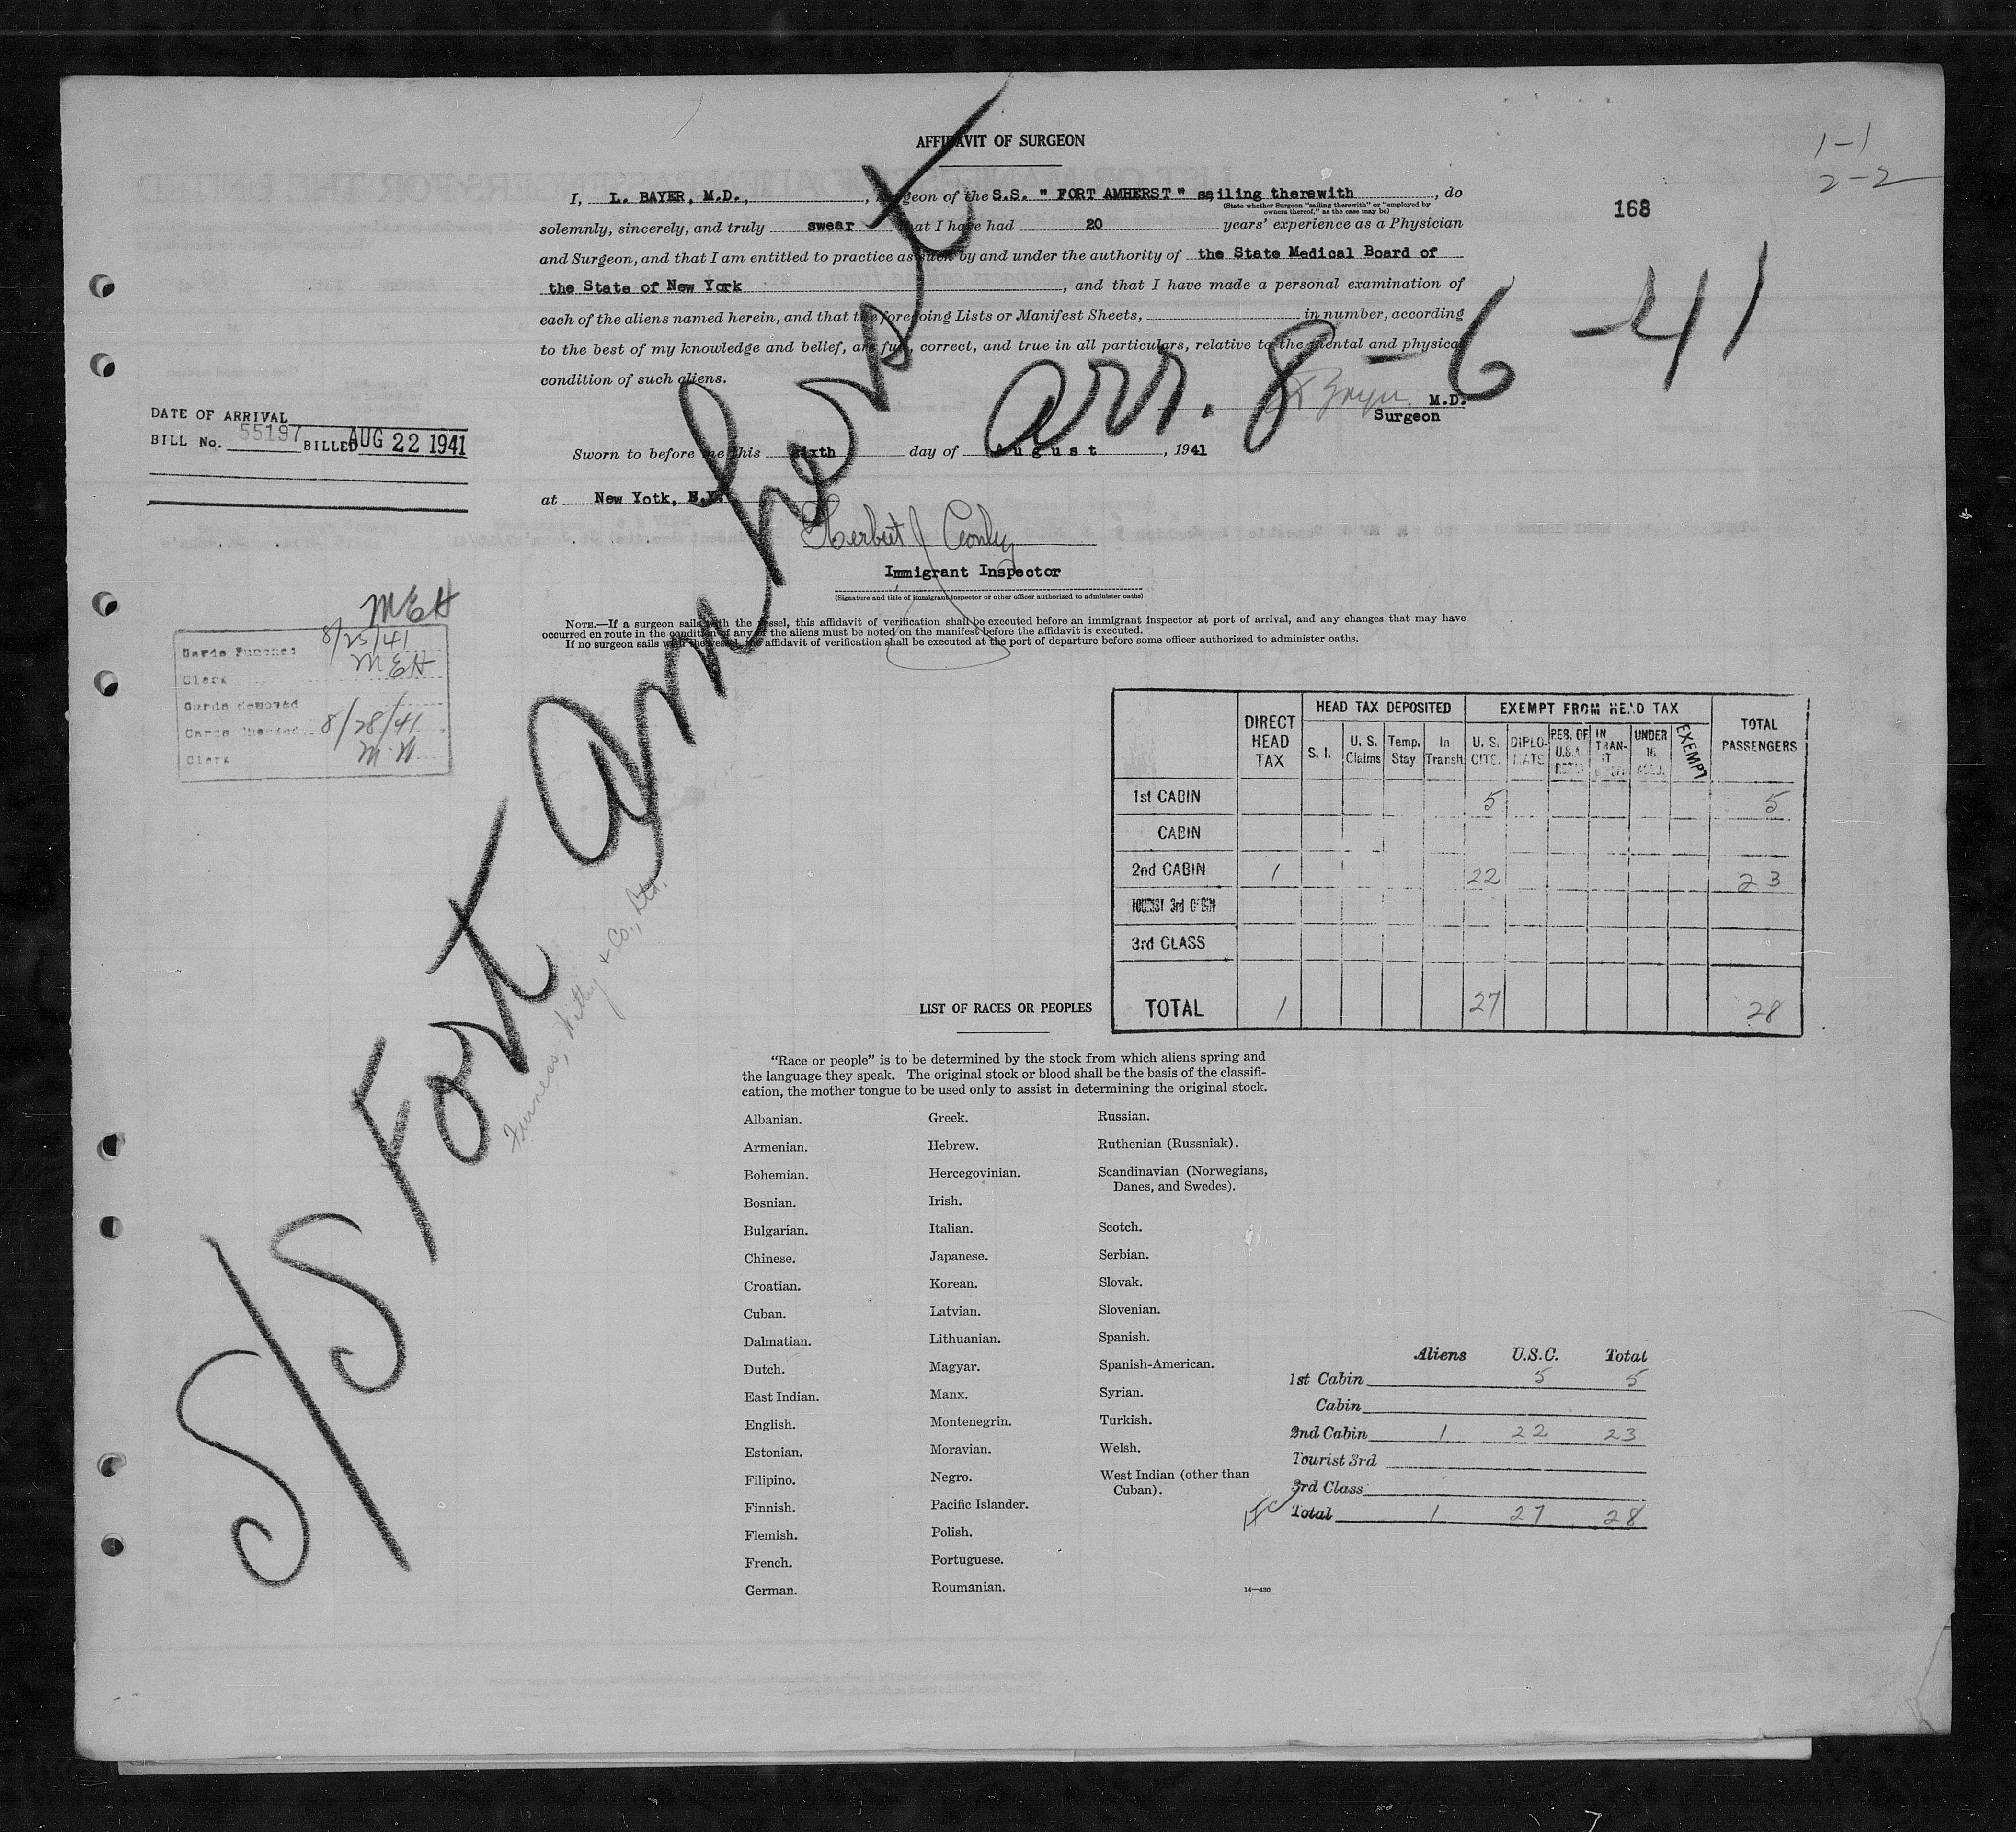 1-1
2-2
168
AFFIDAVIT OF SURGEON
I, L. BAYER, M.D., Surgeon of the S.S. " FORT AMHERST " sailing therewith, do
(State whether Surgeon "sailing therewith" or "employed by
owners thereof," as the case may be)
solemnly, sincerely, and truly swear that I have had 20 years' experience as a Physician
and Surgeon, and that I am entitled to practice as such by and under the authority of the State Medical Board of
the State of New York, and that I have made a personal examination of
each of the aliens named herein, and that the foregoing Lists or Manifest Sheets, in number, according
to the best of my knowledge and belief, are full, correct, and true in all particulars, relative to the mental and physical
condition of such aliens.
L Bayer M.D.
Surgeon
Sworn to before me this sixth day of August, 1941
at New Yotk, N.Y.
Herbert J Conley
Immigrant Inspector
(Signature and title of immigrant inspector or other officer authorized to administer oaths)
NOTE.—If a surgeon sails with the vessel, this affidavit of verification shall be executed before an immigrant inspector at port of arrival, and any changes that may have
occurred en route in the condition of any of the aliens must be noted on the manifest before the affidavit is executed.
If no surgeon sails with the vessel, the affidavit of verification shall be executed at the port of departure before some officer authorized to administer oaths.
S/S Fort Amherst
arr. 8-6-41
Furness, Withy & Co., Ltd.
DATE OF ARRIVAL
BILL No. 55197 BILLED AUG 22 1941
MEH
Cards Punched 8/25/41
Clerk MEH
Cards Removed
Cards Checked 8/28/41
Clerk M.N.
DIRECT HEAD TAX HEAD TAX DEPOSITED EXEMPT FROM HEAD TAX TOTAL PASSENGERS
S. I. U. S. Claims Temp. Stay In Transit U. S. CITS. DIPLO-MATS RES. OF U.S.A. IN TRAN-SIT UNDER 16 EXEMPT
1st CABIN 5 5
CABIN
2nd CABIN 1 22 23
TOURIST 3rd CABIN
3rd CLASS
TOTAL 1 27 28
LIST OF RACES OR PEOPLES
"Race or people" is to be determined by the stock from which aliens spring and
the language they speak. The original stock or blood shall be the basis of the classifi-
cation, the mother tongue to be used only to assist in determining the original stock.
Albanian.
Armenian.
Bohemian.
Bosnian.
Bulgarian.
Chinese.
Croatian.
Cuban.
Dalmatian.
Dutch.
East Indian.
English.
Estonian.
Filipino.
Finnish.
Flemish.
French.
German.
Greek.
Hebrew.
Hercegovinian.
Irish.
Italian.
Japanese.
Korean.
Latvian.
Lithuanian.
Magyar.
Manx.
Montenegrin.
Moravian.
Negro.
Pacific Islander.
Polish.
Portuguese.
Roumanian.
Russian.
Ruthenian (Russniak).
Scandinavian (Norwegians,
Danes, and Swedes).
Scotch.
Serbian.
Slovak.
Slovenian.
Spanish.
Spanish-American.
Syrian.
Turkish.
Welsh.
West Indian (other than
Cuban).
14—430
Aliens U.S.C. Total
1st Cabin 5 5
Cabin
2nd Cabin 1 22 23
Tourist 3rd
3rd Class
Total 1 27 28